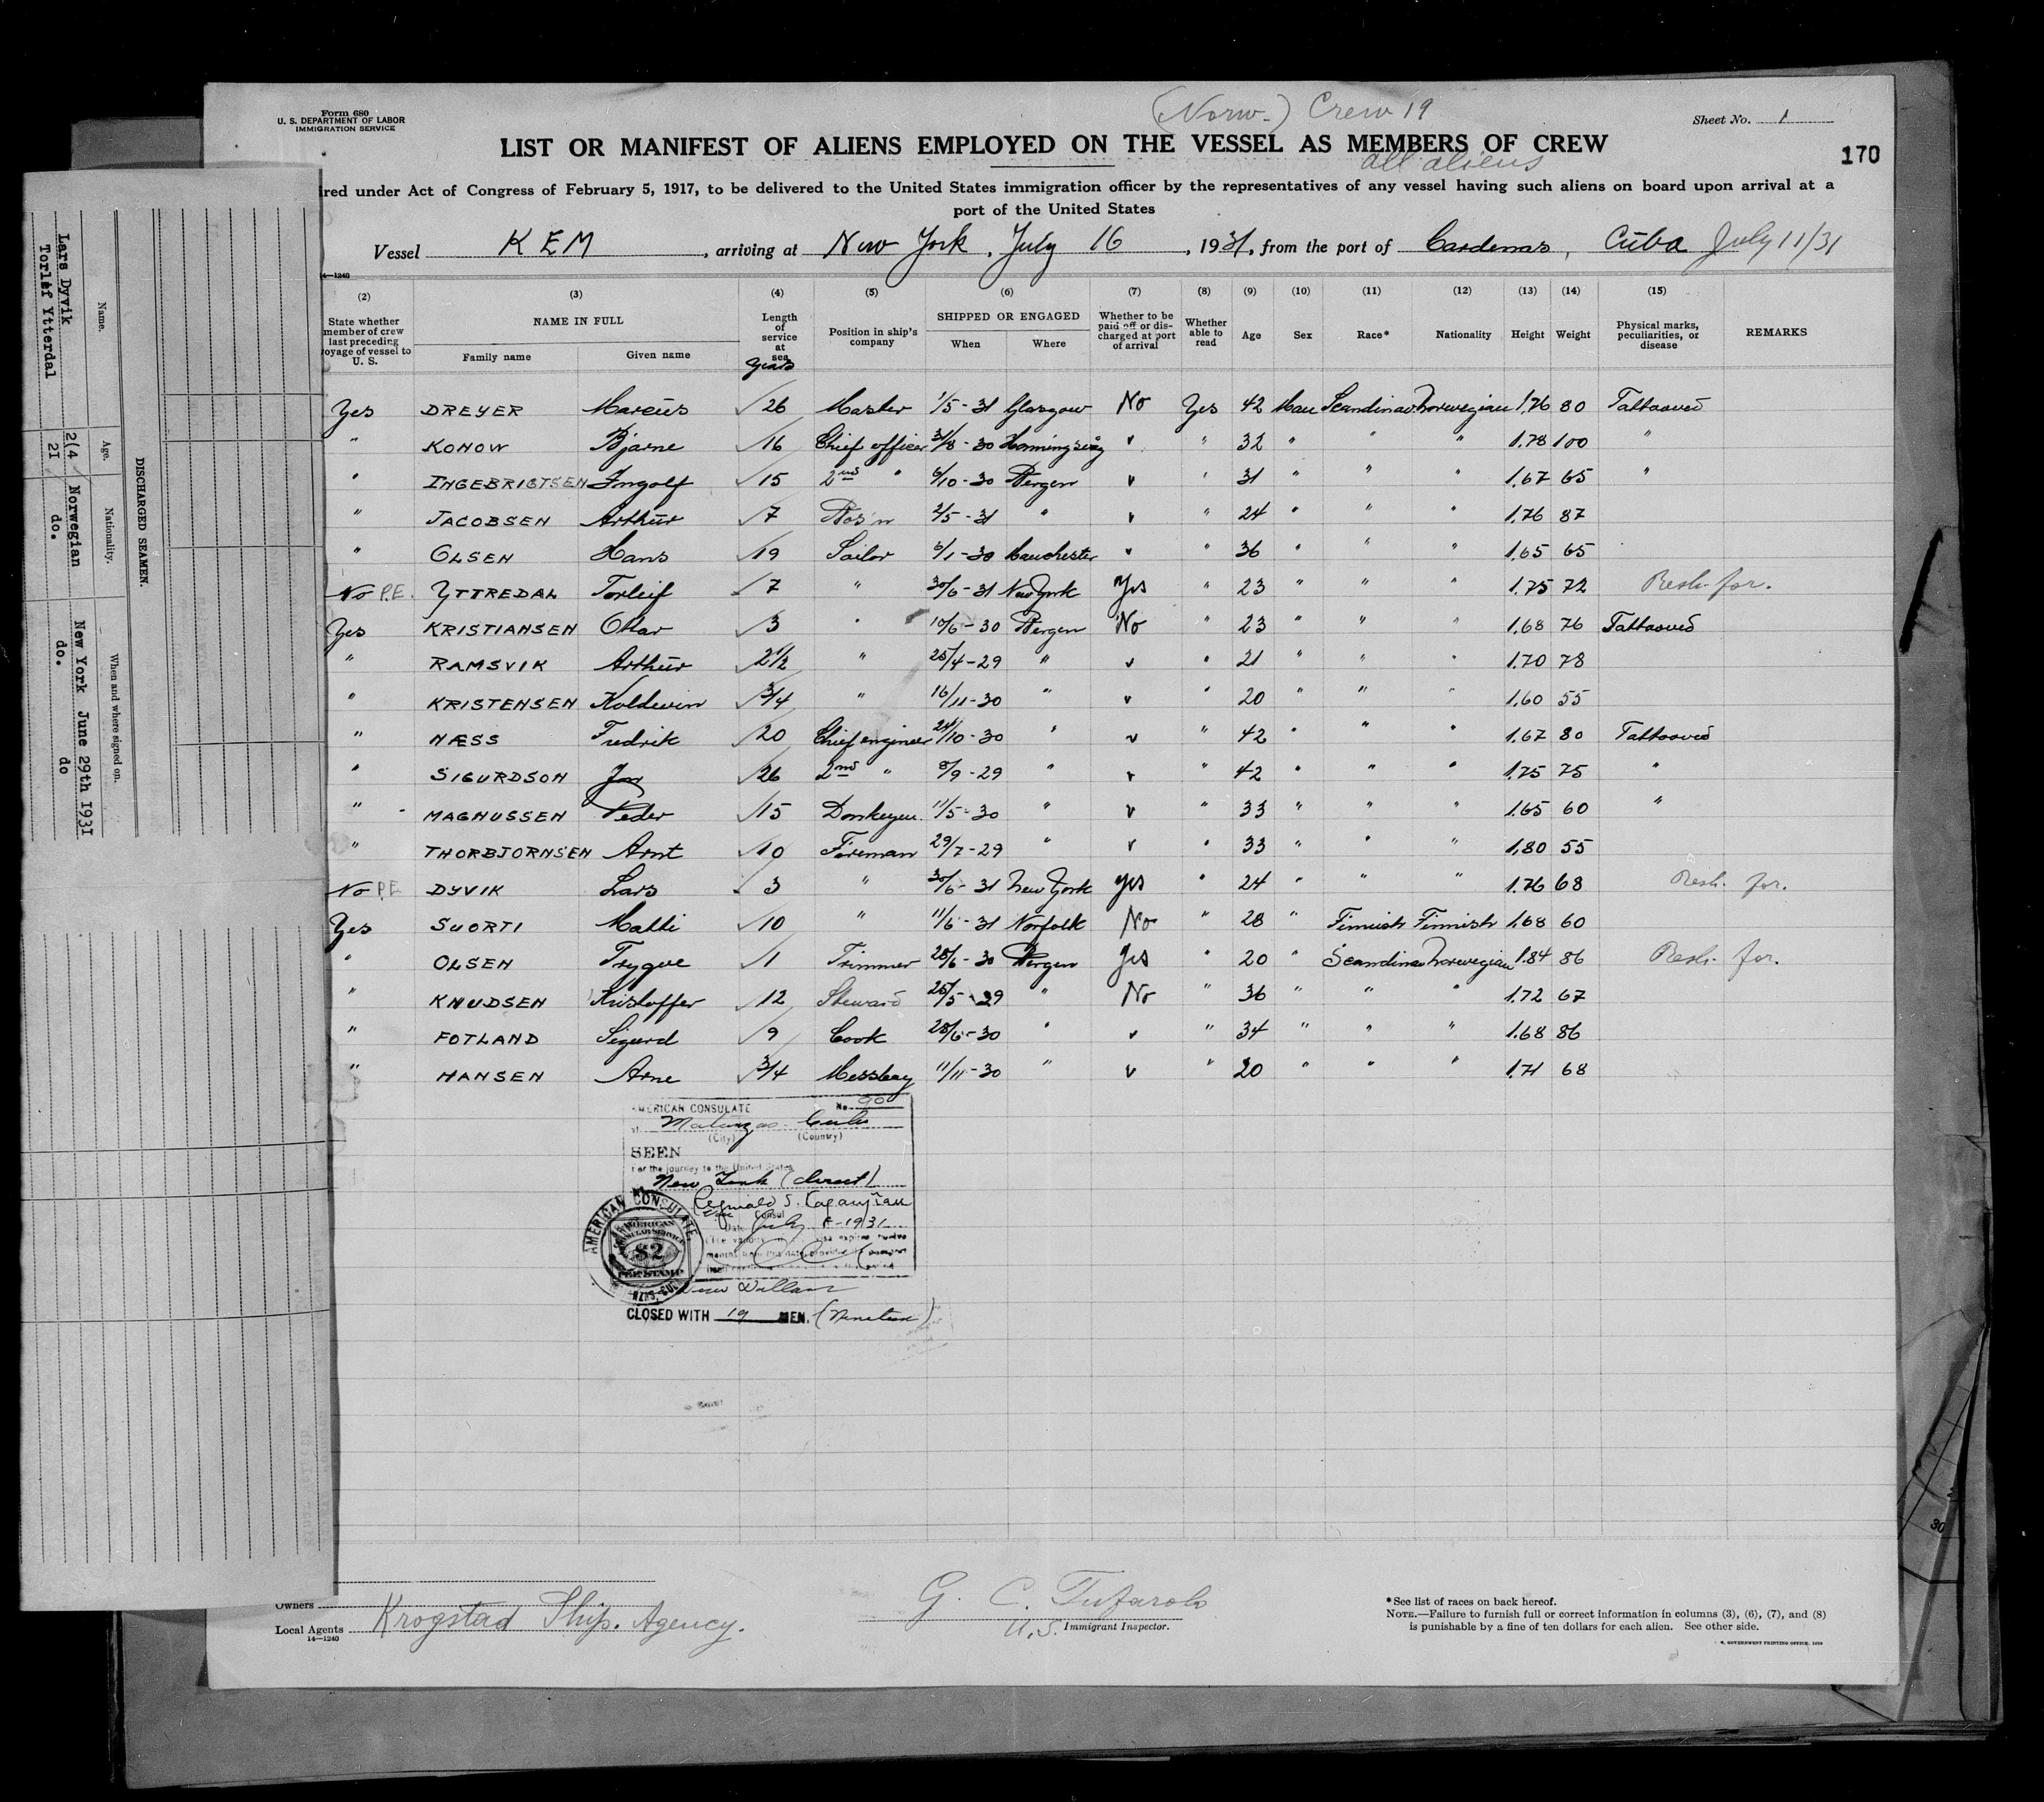 Form 680
U. S. DEPARTMENT OF LABOR
IMMIGRATION SERVICE
(Norw.) Crew 19
Sheet No. 1
LIST OR MANIFEST OF ALIENS EMPLOYED ON THE VESSEL AS MEMBERS OF CREW
all aliens
170
ired under Act of Congress of February 5, 1917, to be delivered to the United States immigration officer by the representatives of any vessel having such aliens on board upon arrival at a
port of the United States
Vessel KEM, arriving at New York, July 16, 1931, from the port of Cardenas, Cuba July 11/31
14—1240
(2) (3) (4) (5) (6) (7) (8) (9) (10) (11) (12) (13) (14) (15)
State whether member of crew last preceding voyage of vessel to U. S.
NAME IN FULL
Family name Given name
Length of service at sea
Years
Position in ship's company
SHIPPED OR ENGAGED
When Where
Whether to be paid off or discharged at port of arrival
Whether able to read
Age Sex Race* Nationality Height Weight
Physical marks, peculiarities, or disease
REMARKS
Yes DREYER Marcus √26 Master 1/5-31 Glasgow No Yes 42 Man Scandinav Norwegian 1.76 80 Tattooved
" KONOW Bjarne √16 Chief officer 31/8-30 Honningsvåg v " 32 " " " 1.78 100 "
" INGEBRIGTSEN Ingolf √15 2nd " 6/10-30 Bergen v " 31 " " " 1.67 65 "
" JACOBSEN Arthur √7 Bos'n 2/5-31 " v " 24 " " " 1.76 87
" OLSEN Hans √19 Sailor 3/1-30 Manchester v " 36 " " " 1.65 65
No P.E. YTTREDAL Torleif √7 " 30/6-31 New York Yes " 23 " " " 1.75 72 Resh. for.
Yes KRISTIANSEN Ottar √3 " 10/6-30 Bergen No " 23 " " " 1.68 76 Tattooved
" RAMSVIK Arthur √2 1/2 " 25/4-29 " v " 21 " " " 1.70 78
" KRISTENSEN Koldevin √3/4 " 16/11-30 " v " 20 " " " 1.60 55
" NÆSS Fredrik √20 Chief engineer 24/10-30 " v " 42 " " " 1.67 80 Tattooved
" SIGURDSON Jon √26 2nd " 8/9-29 " v " 42 " " " 1.75 75 "
" MAGNUSSEN Peder √15 Donkeym. 11/5-30 " v " 33 " " " 1.65 60 "
" THORBJORNSEN Arnt √10 Fireman 29/7-29 " v " 33 " " " 1.80 55
No P.E. DYVIK Lars √3 " 30/6-31 New York yes " 24 " " " 1.76 68 Resh. for.
Yes SUORTI Matti √10 " 11/6-31 Norfolk No " 28 " Finnish Finnish 1.68 60
" OLSEN Trygve √1 Trimmer 28/6-30 Bergen Yes " 20 " Scandinav Norwegian 1.84 86 Resh. for.
" KNUDSEN Kristoffer √12 Steward 25/5-29 " No " 36 " " " 1.72 67
" FOTLAND Sigurd √9 Cook 28/6-30 " v " 34 " " " 1.68 86
" HANSEN Arne √3/4 Messboy 11/11-30 " v " 20 " " " 1.71 68
AMERICAN CONSULATE No. 90
at Matanzas Cuba
(City) (Country)
SEEN
For the journey to the United States
New York (direct)
Consul
Date July 1931
AMERICAN CONSULATE
$2
CLOSED WITH 19 MEN. (Nineteen)
Owners
Local Agents Krogstad Ship. Agency.
14—1240
G. C. Tufarolo
U.S. Immigrant Inspector.
*See list of races on back hereof.
NOTE.—Failure to furnish full or correct information in columns (3), (6), (7), and (8)
is punishable by a fine of ten dollars for each alien. See other side.
GOVERNMENT PRINTING OFFICE
DISCHARGED SEAMEN.
Name. Age. Nationality. When and where signed on.
Lars Dyvik 2(4 Norwegian New York June 29th 1931
Torlef Ytterdal 21 do. do. do
30